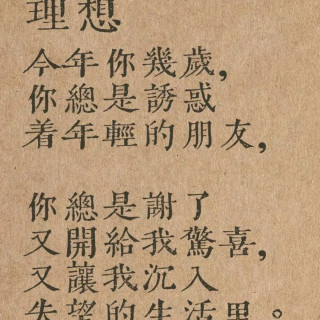 理想
今年你幾歲，
你總是誘惑
着年輕的朋友，
你總是謝了
又開給我驚喜，
又讓我沉入
失望的生活里。